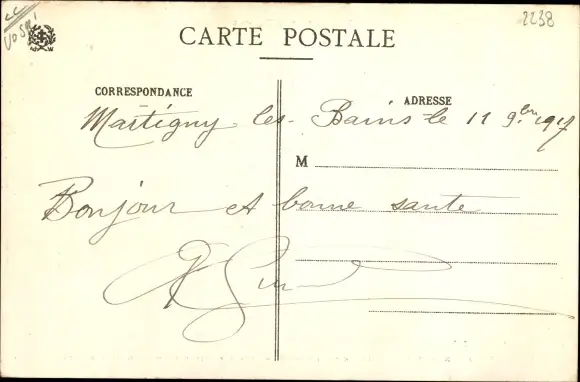 VOSG
2238
CARTE POSTALE
CORRESPONDANCE
ADRESSE
Martigny-les-Bains-le 11 9bre 1917
M
Bonjour et bonne santé